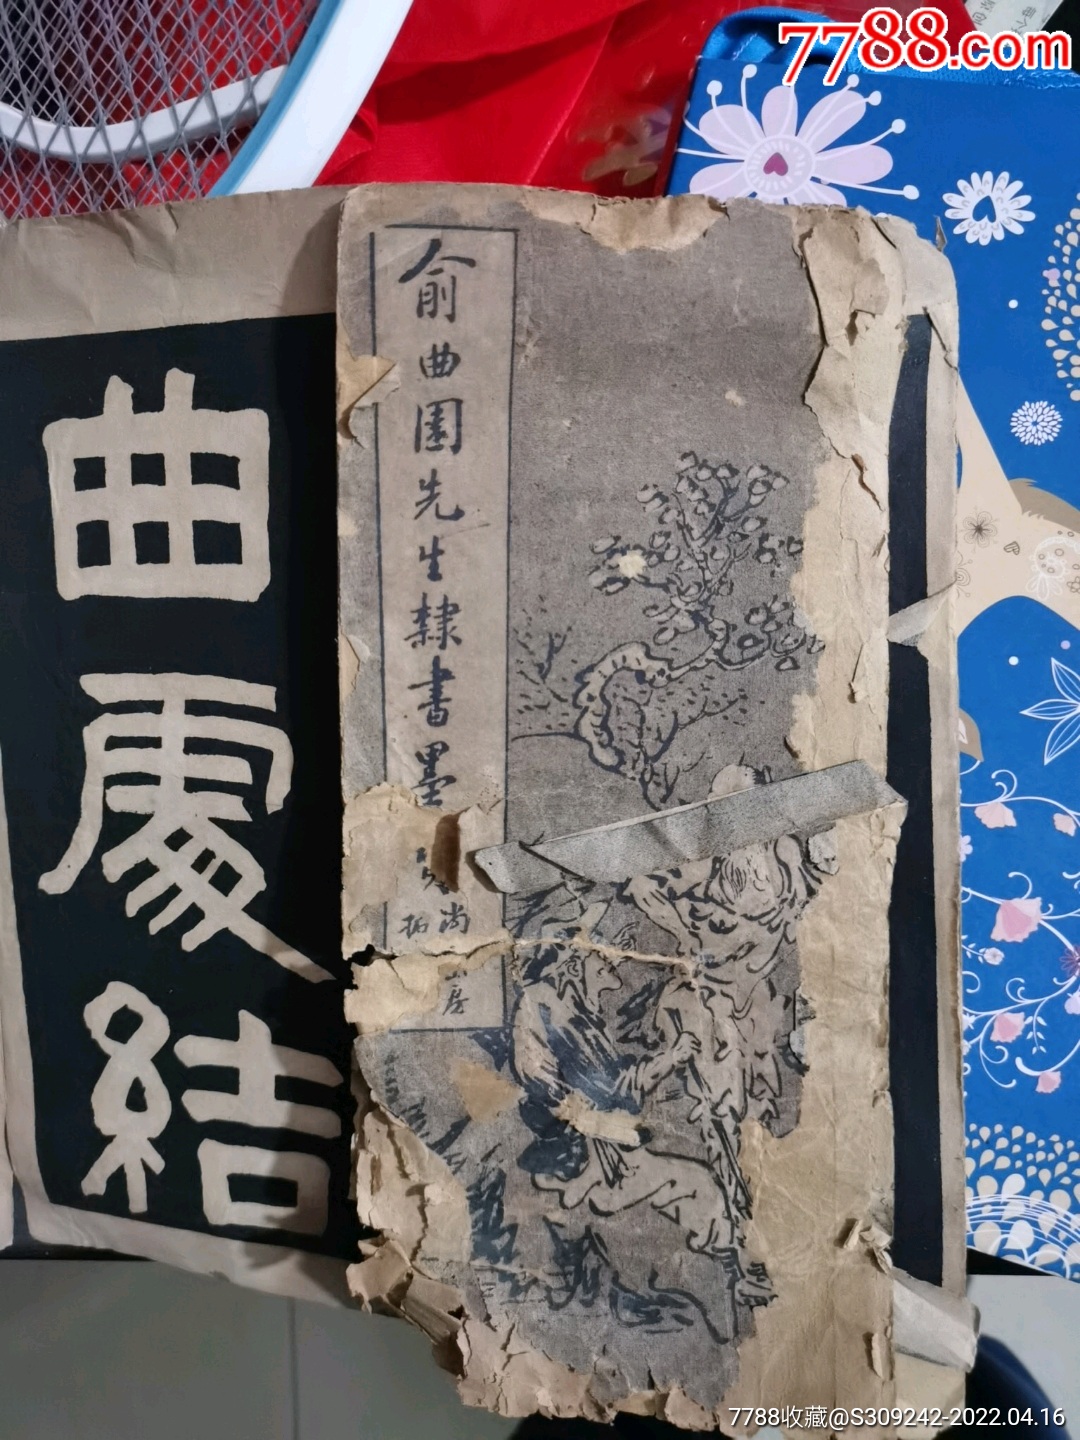 7788.com
俞曲園先生隸書墨
尚
山房
拓
曲處結
7788收藏@S309242-2022.04.16